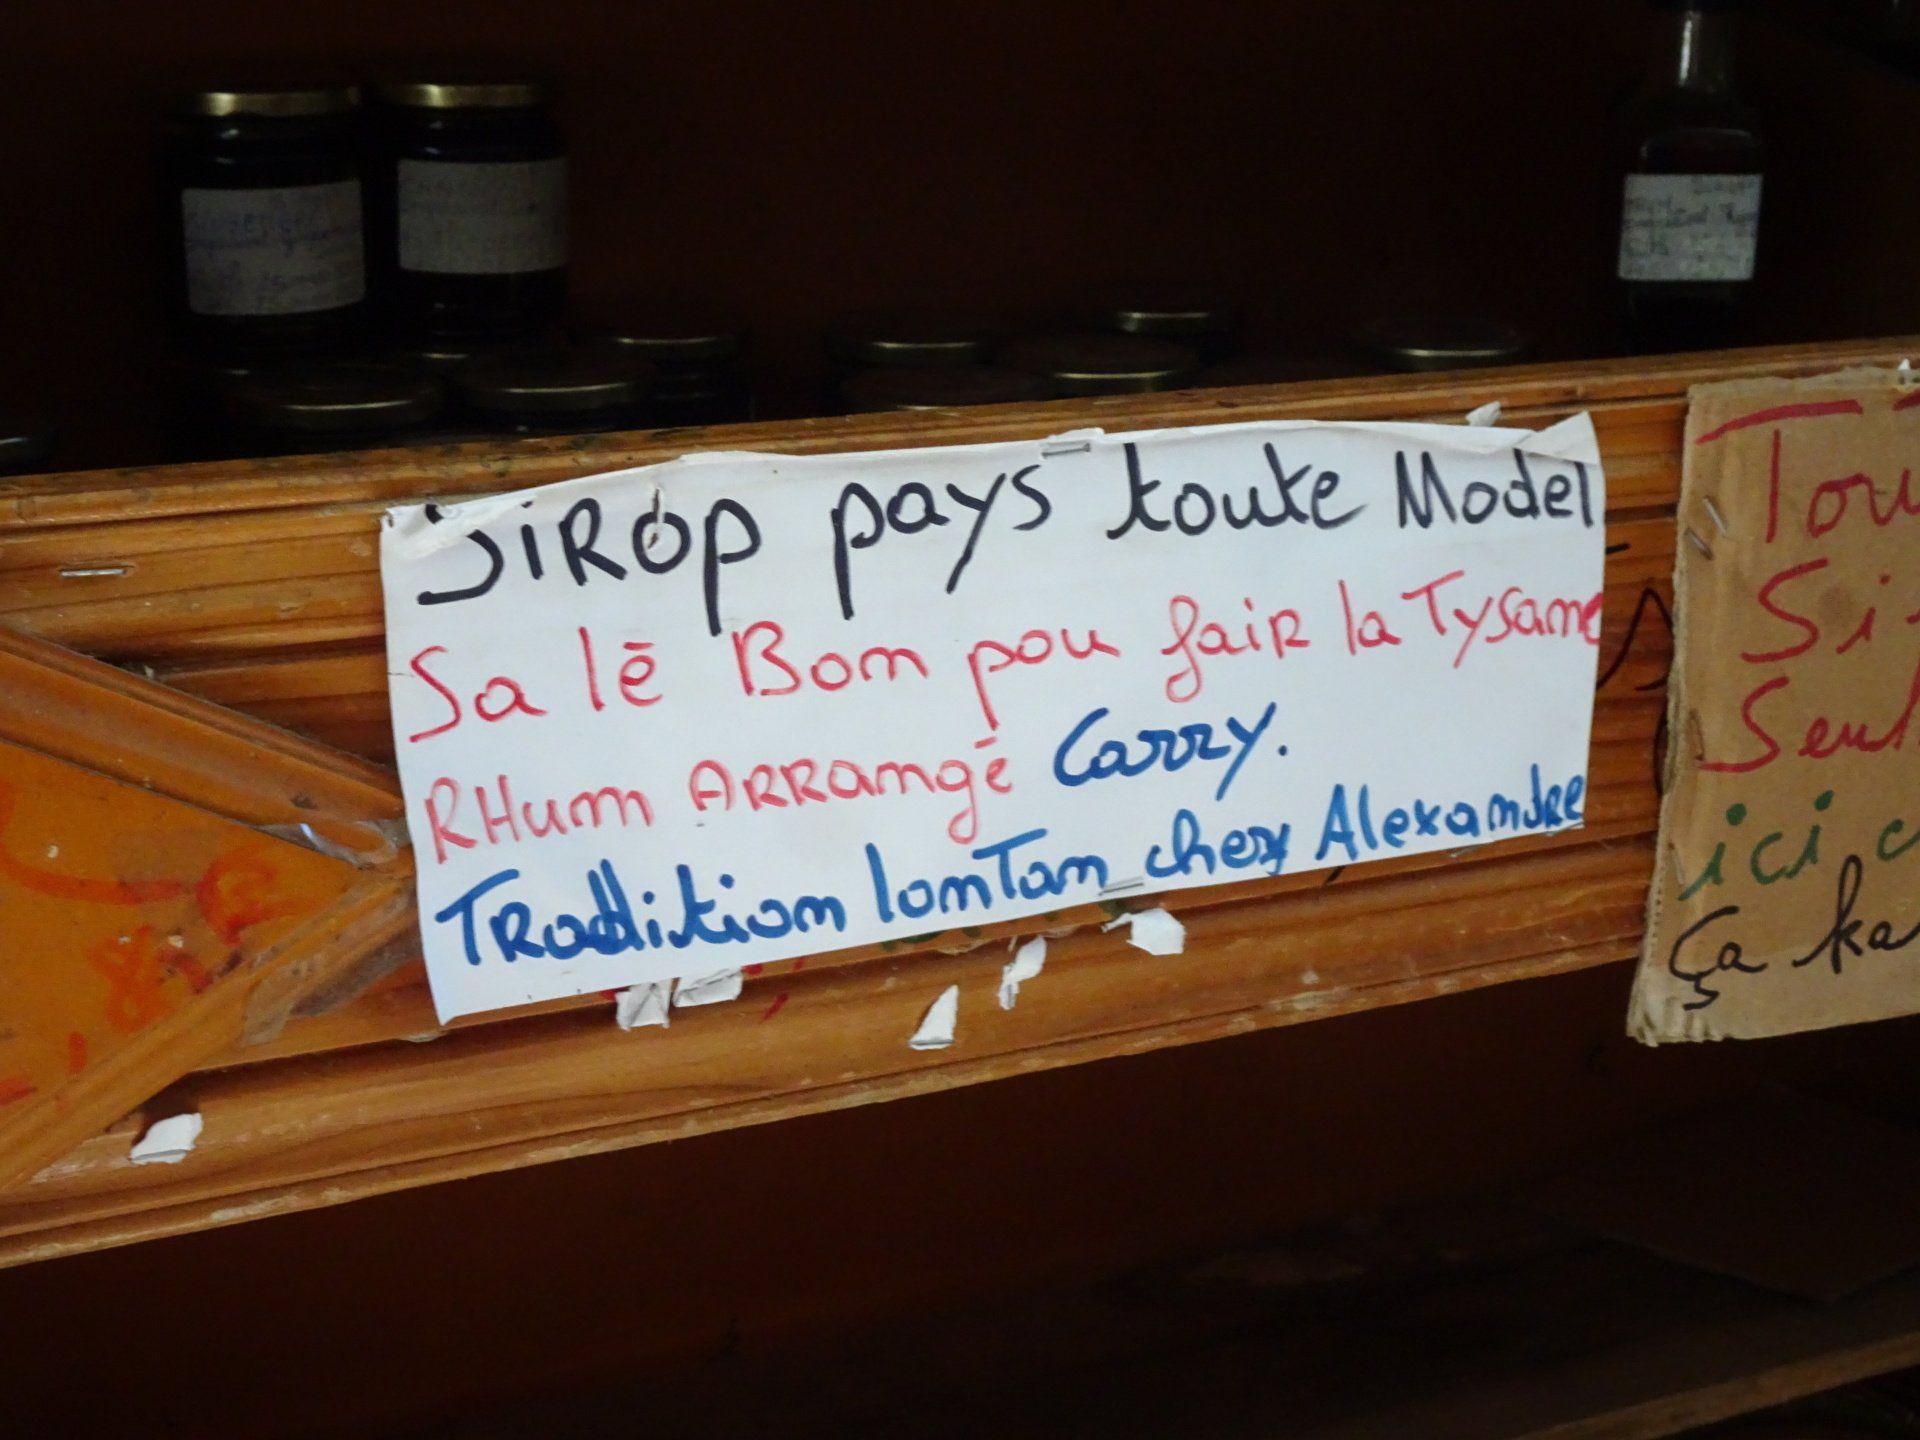 SiROP pays toute Model
Sa lé Bon pou fair la Tysane
RHum ARRangé Carry.
Tradition lonTan chez Alexandre
Tou
Si
Seul
ici c
Ça ka